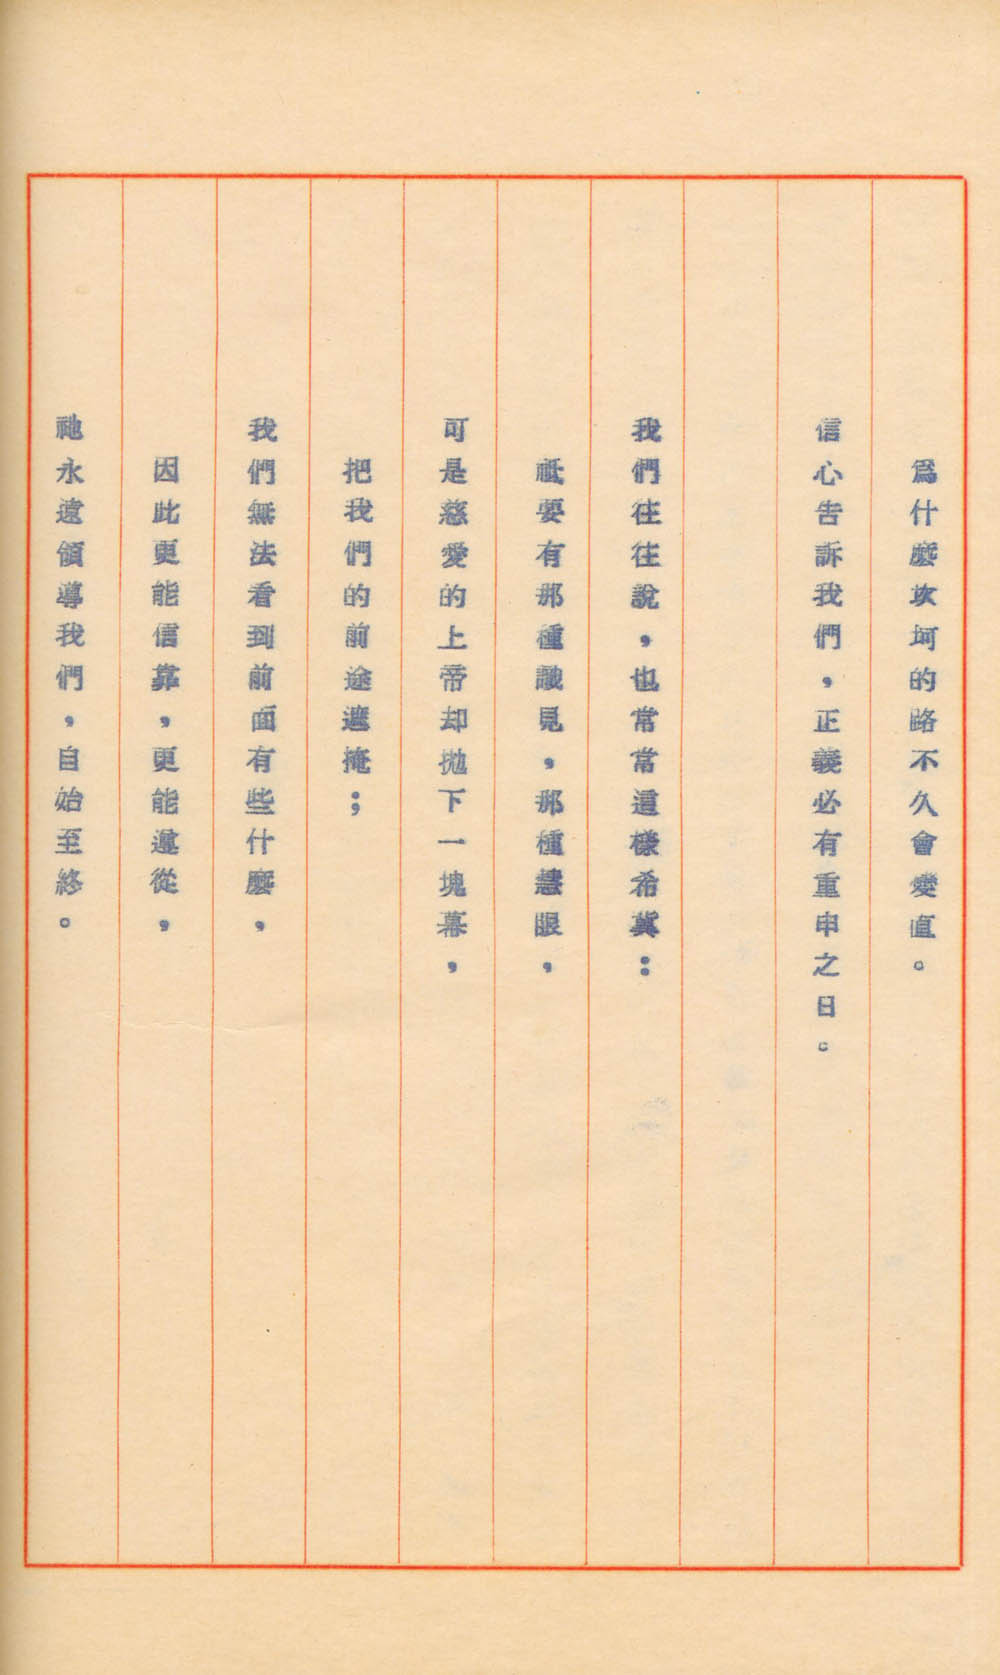 爲什麼坎坷的路不久會變直。
信心告訴我們，正義必有重申之日。
我們往往說，也常常這樣希冀：
祗要有那種識見，那種慧眼，
可是慈愛的上帝却拋下一塊幕，
把我們的前途遮掩；
我們無法看到前面有些什麼，
因此更能信靠，更能遵從，
祂永遠領導我們，自始至終。